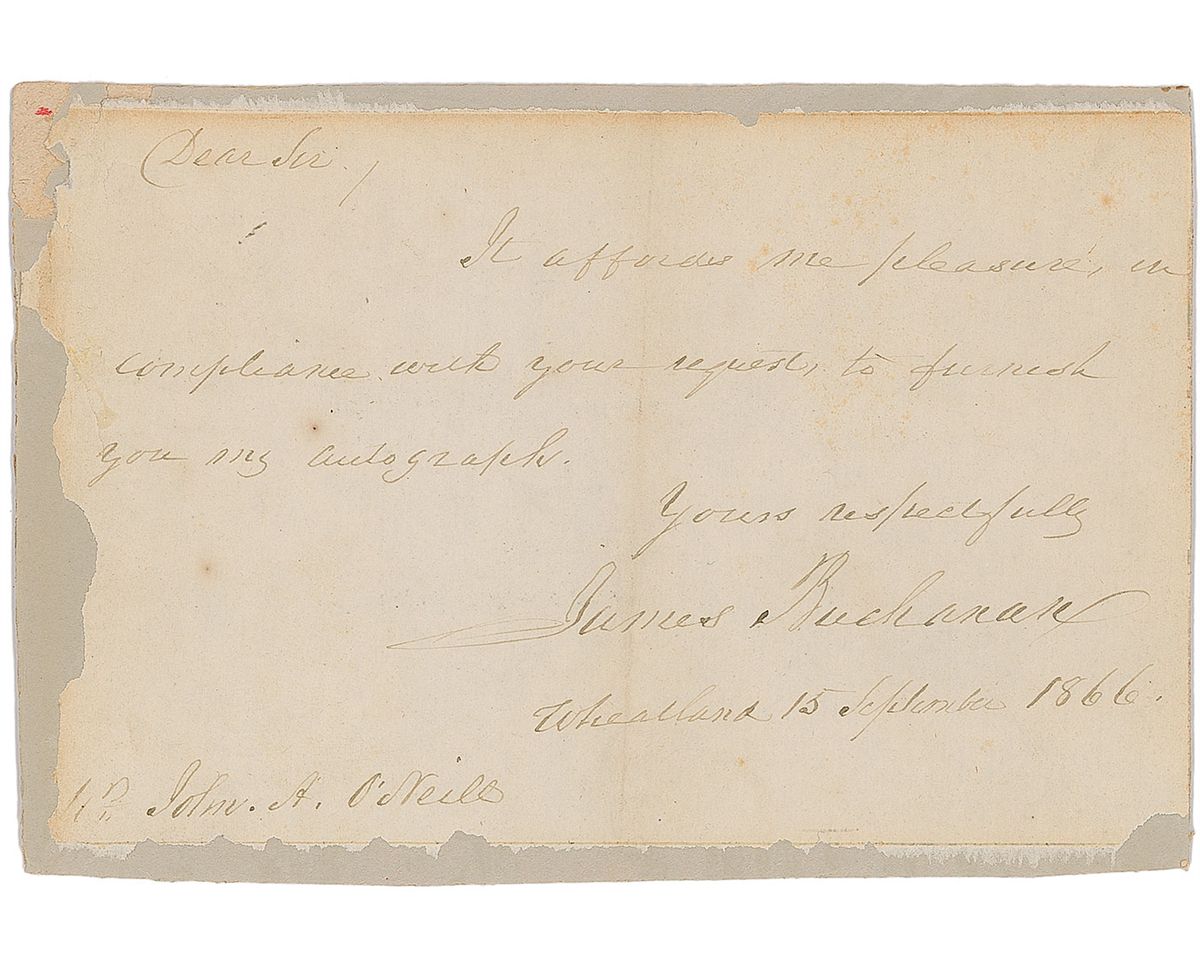 Dear Sir,
It affords me pleasure, in
compliance with your request, to furnish
you my autograph.
Yours respectfully
James Buchanan
Wheatland 15 September 1866.
John. A. O'Neill